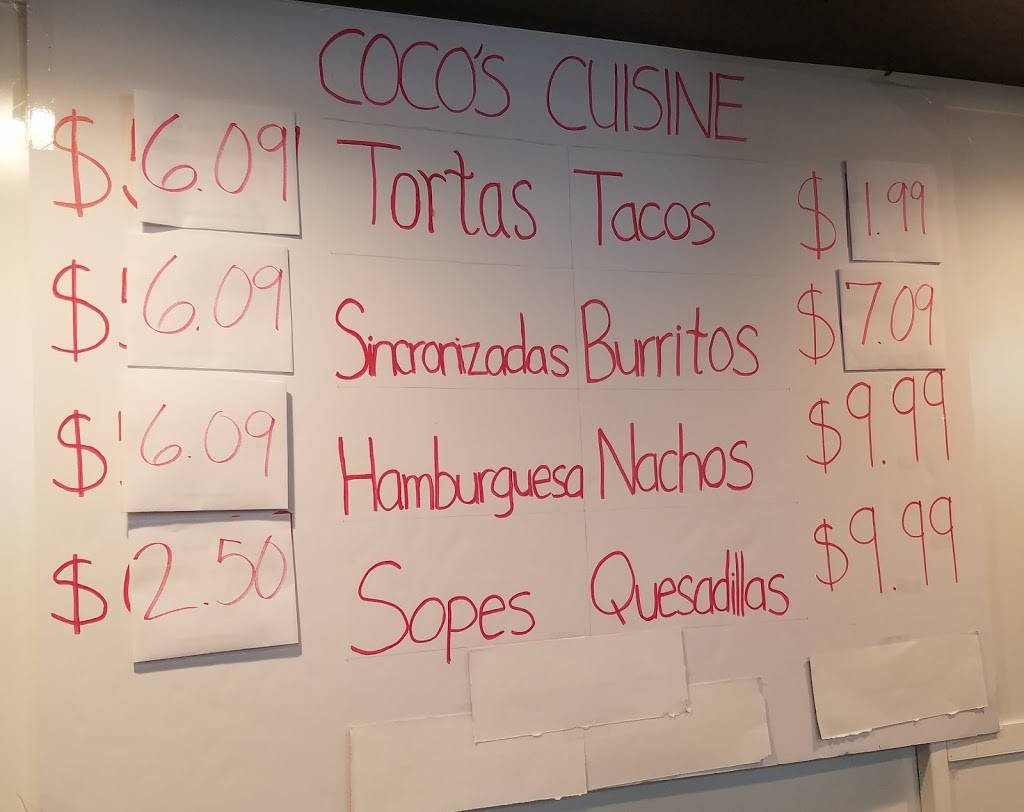 COCO'S CUISINE
$ 6.09 Tortas Tacos $ 1.99
$ 6.09 Sincronizadas Burritos $ 7.09
$ 6.09 Hamburguesa Nachos $9.99
$ 2.50 Sopes Quesadillas $9.99